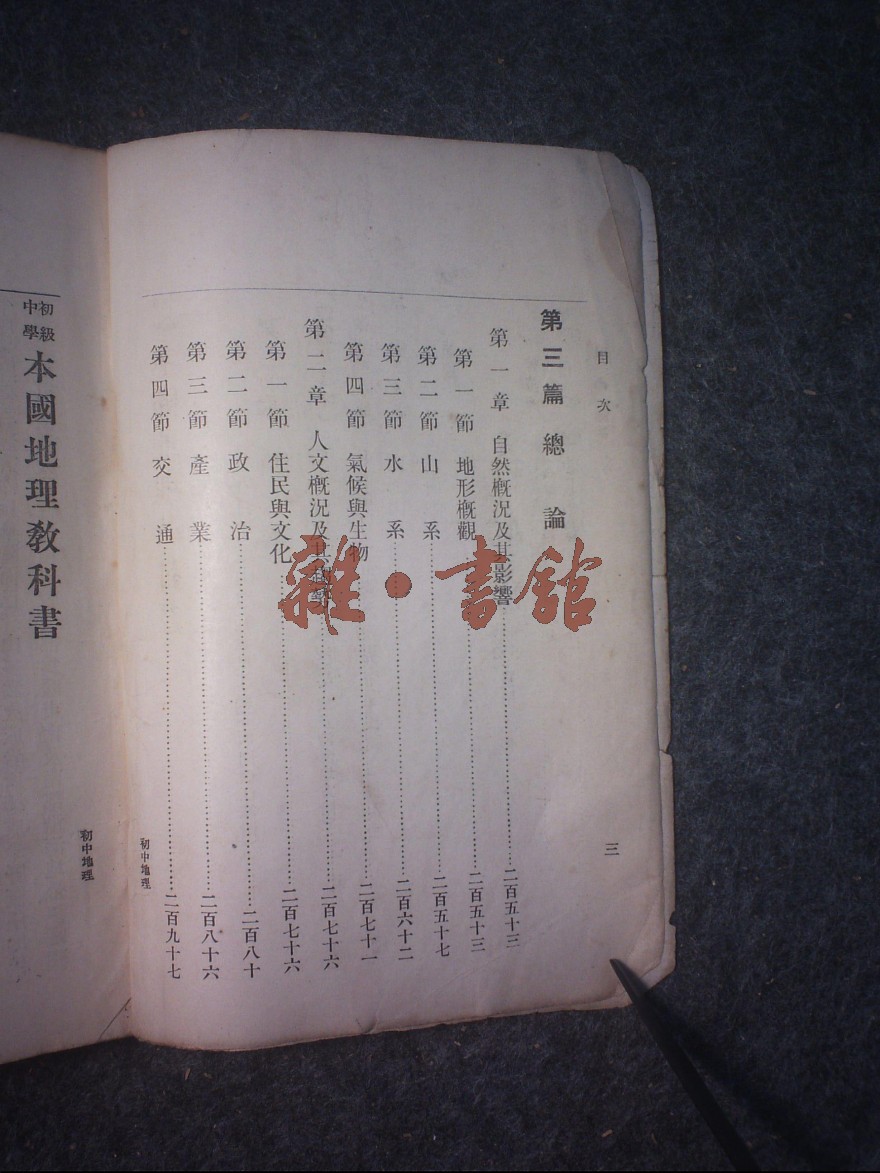 目次
三
第三篇 總論
第一章 自然概況及其影響……二百五十三
第一節 地形概觀……二百五十三
第二節 山系……二百五十七
第三節 水系……二百六十二
第四節 氣候與生物……二百七十一
第二章 人文概況及其……二百七十六
第一節 住民與文化……二百七十六
第二節 政治……二百八十
第三節 產業……二百八十六
第四節 交通……二百九十七
初中地理
初級中學 本國地理教科書
初中地理
雜·書館